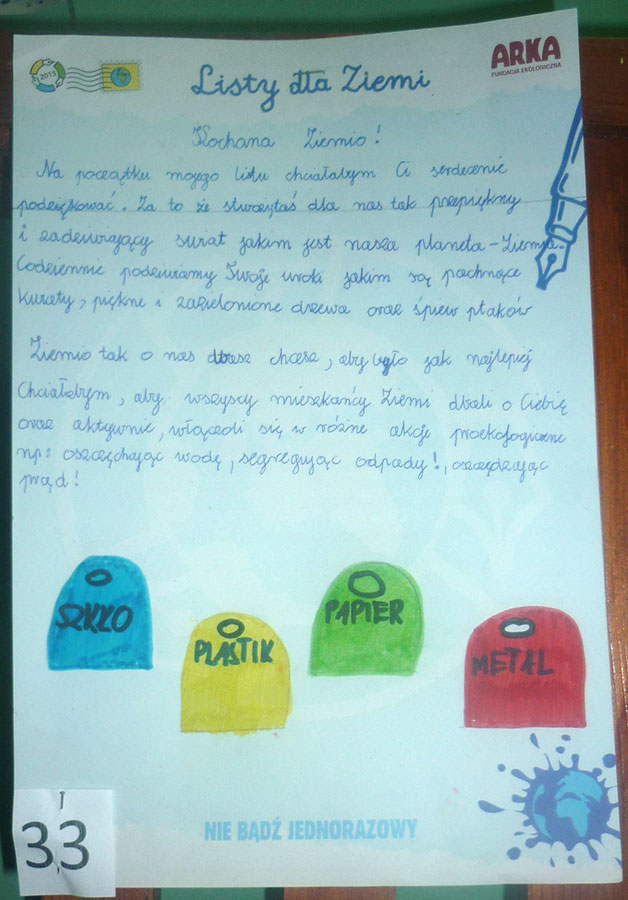 2015
ARKA
FUNDACJA EKOLOGICZNA
Listy dla Ziemi
Kochana Ziemio!
Na początku mojego listu chciałabym Ci serdecznie
podziękować. Za to że stworzyłaś dla nas tak przepiękny
i zadziwiający świat jakim jest nasza planeta - Ziemia.
Codziennie podziwiamy Twoje uroki jakim są pachnące
kwiaty, piękne i zazielenione drzewa oraz śpiew ptaków
Ziemio tak o nas dbasz chcesz, aby było jak najlepiej
Chciałabym, aby wszyscy mieszkańcy Ziemi dbali o Ciebię
oraz aktywnie, włączali się w różne akcje proekologiczne
np: oszczęchając wodę, segregując odpady!, oszczędzając
prąd!
SZKŁO
PLASTIK
PAPIER
METAL
NIE BĄDŹ JEDNORAZOWY
33